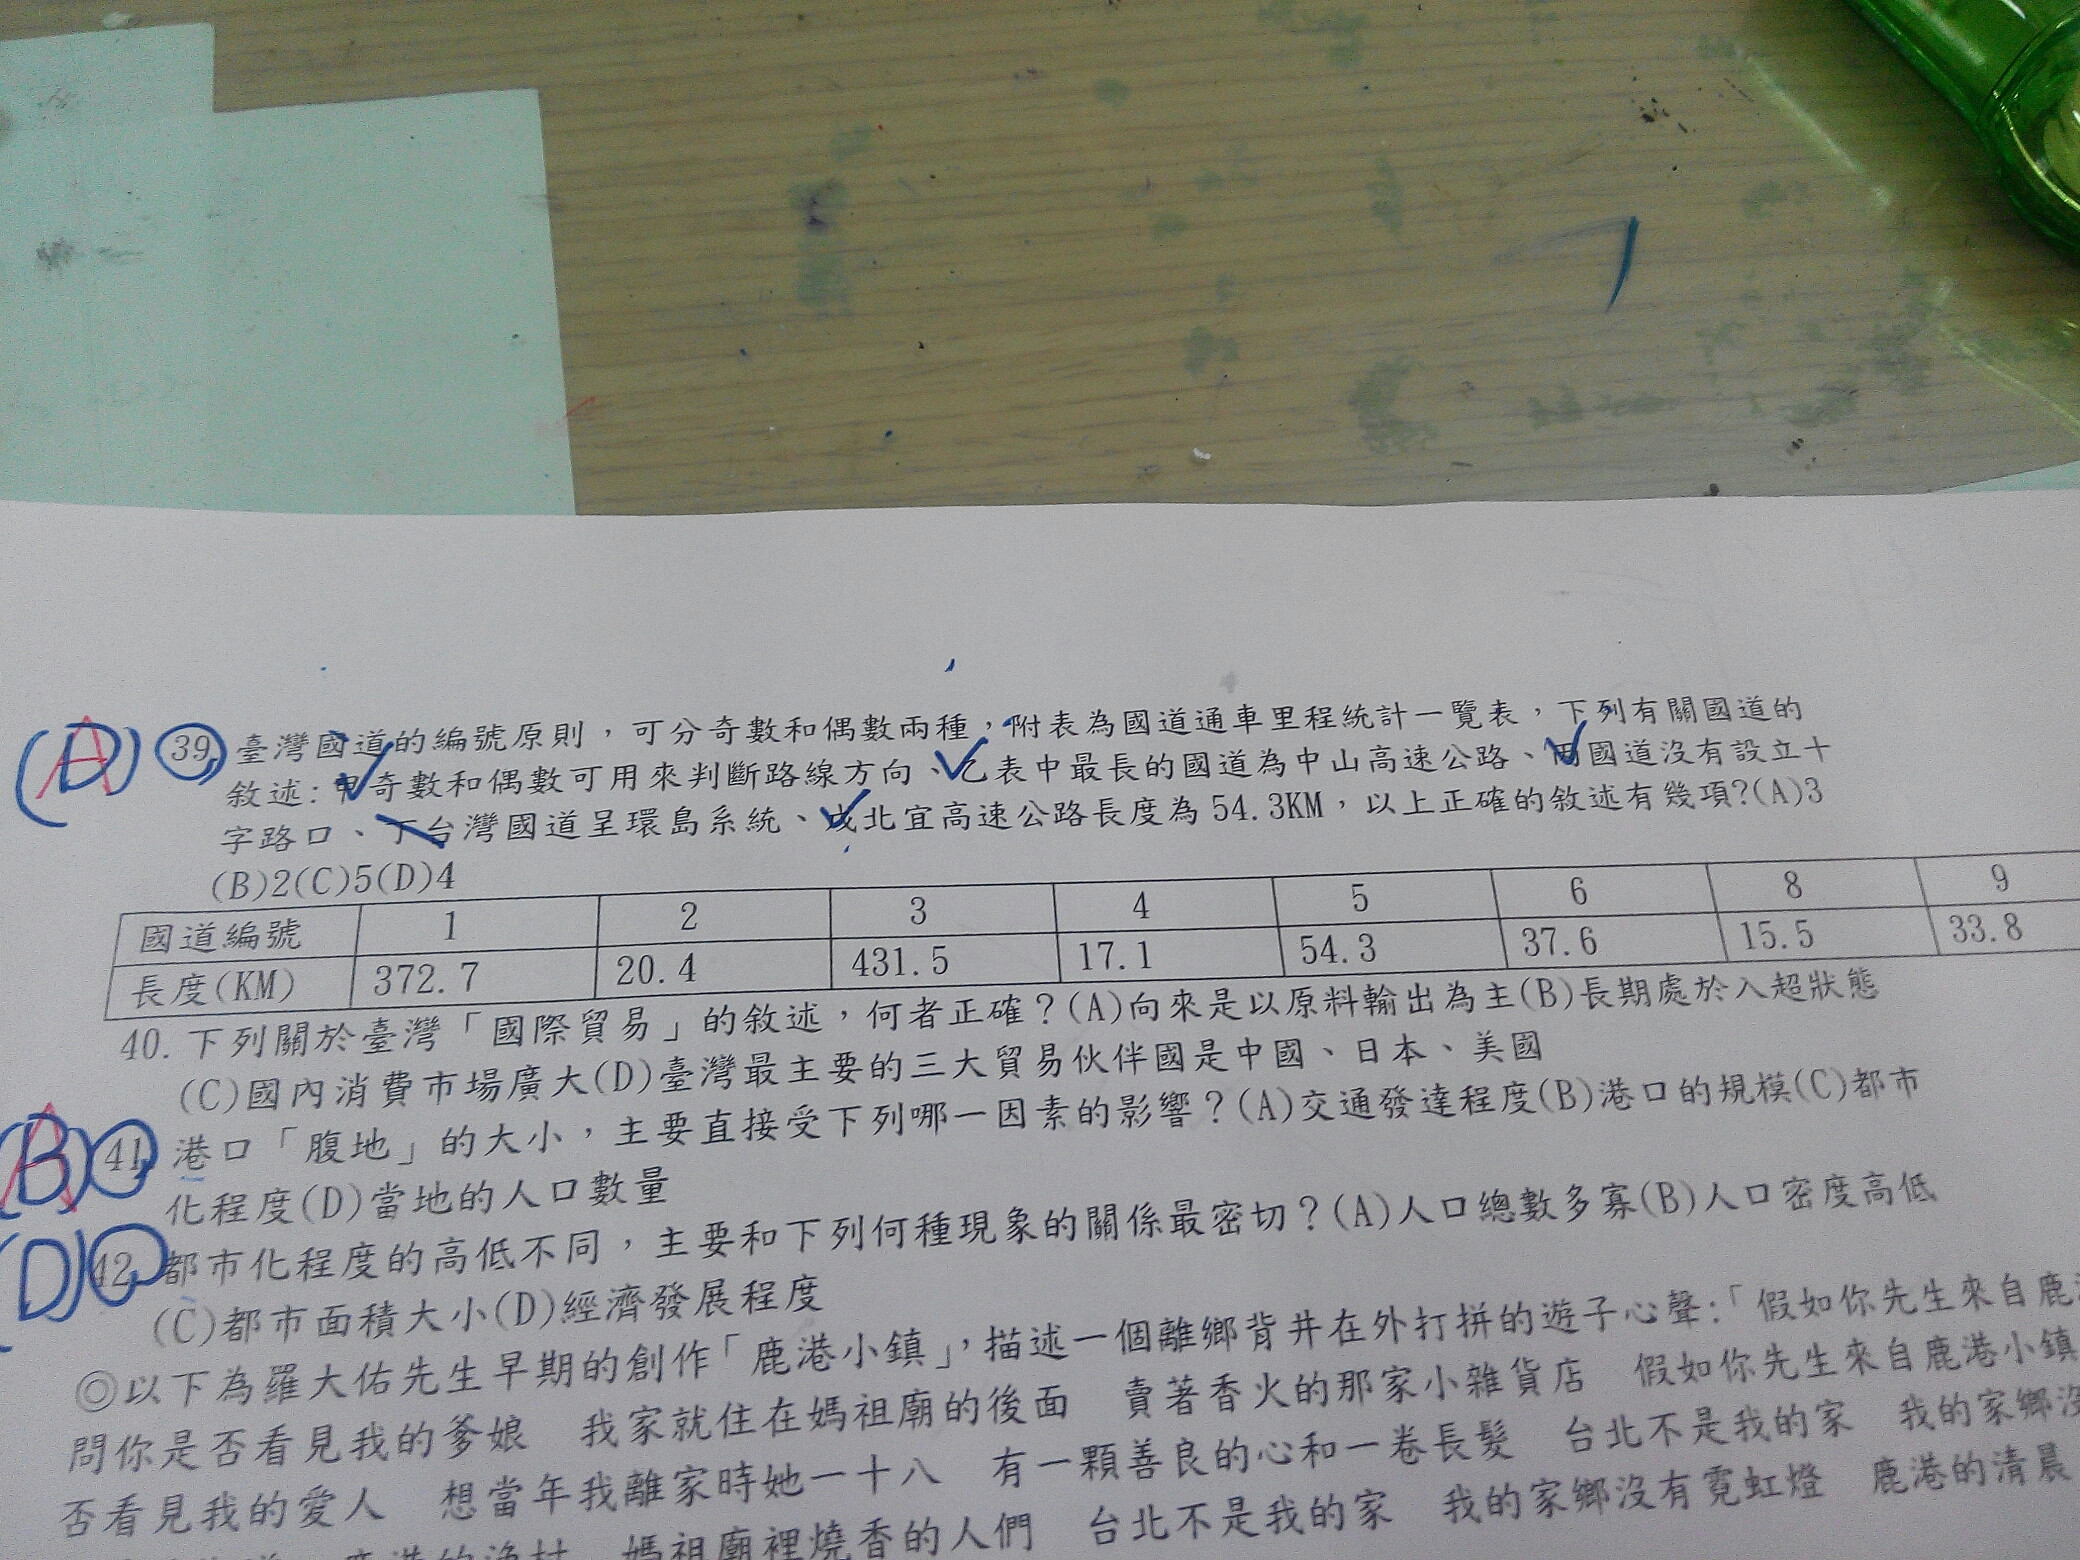 (D) A 39. 臺灣國道的編號原則，可分奇數和偶數兩種，附表為國道通車里程統計一覽表，下列有關國道的
敘述:甲奇數和偶數可用來判斷路線方向、乙表中最長的國道為中山高速公路、丙國道沒有設立十
字路口、丁台灣國道呈環島系統、戊北宜高速公路長度為54.3KM，以上正確的敘述有幾項?(A)3
(B)2(C)5(D)4
國道編號 1 2 3 4 5 6 8 9
長度(KM) 372.7 20.4 431.5 17.1 54.3 37.6 15.5 33.8
40. 下列關於臺灣「國際貿易」的敘述，何者正確？(A)向來是以原料輸出為主(B)長期處於入超狀態
(C)國內消費市場廣大(D)臺灣最主要的三大貿易伙伴國是中國、日本、美國
(B) A 41. 港口「腹地」的大小，主要直接受下列哪一因素的影響？(A)交通發達程度(B)港口的規模(C)都市
化程度(D)當地的人口數量
(D) 42. 都市化程度的高低不同，主要和下列何種現象的關係最密切？(A)人口總數多寡(B)人口密度高低
(C)都市面積大小(D)經濟發展程度
◎以下為羅大佑先生早期的創作「鹿港小鎮」，描述一個離鄉背井在外打拼的遊子心聲:「假如你先生來自鹿
問你是否看見我的爹娘 我家就住在媽祖廟的後面 賣著香火的那家小雜貨店 假如你先生來自鹿港小鎮
否看見我的愛人 想當年我離家時她一十八 有一顆善良的心和一卷長髮 台北不是我的家 我的家鄉沒
媽祖廟裡燒香的人們 台北不是我的家 我的家鄉沒有霓虹燈 鹿港的清晨